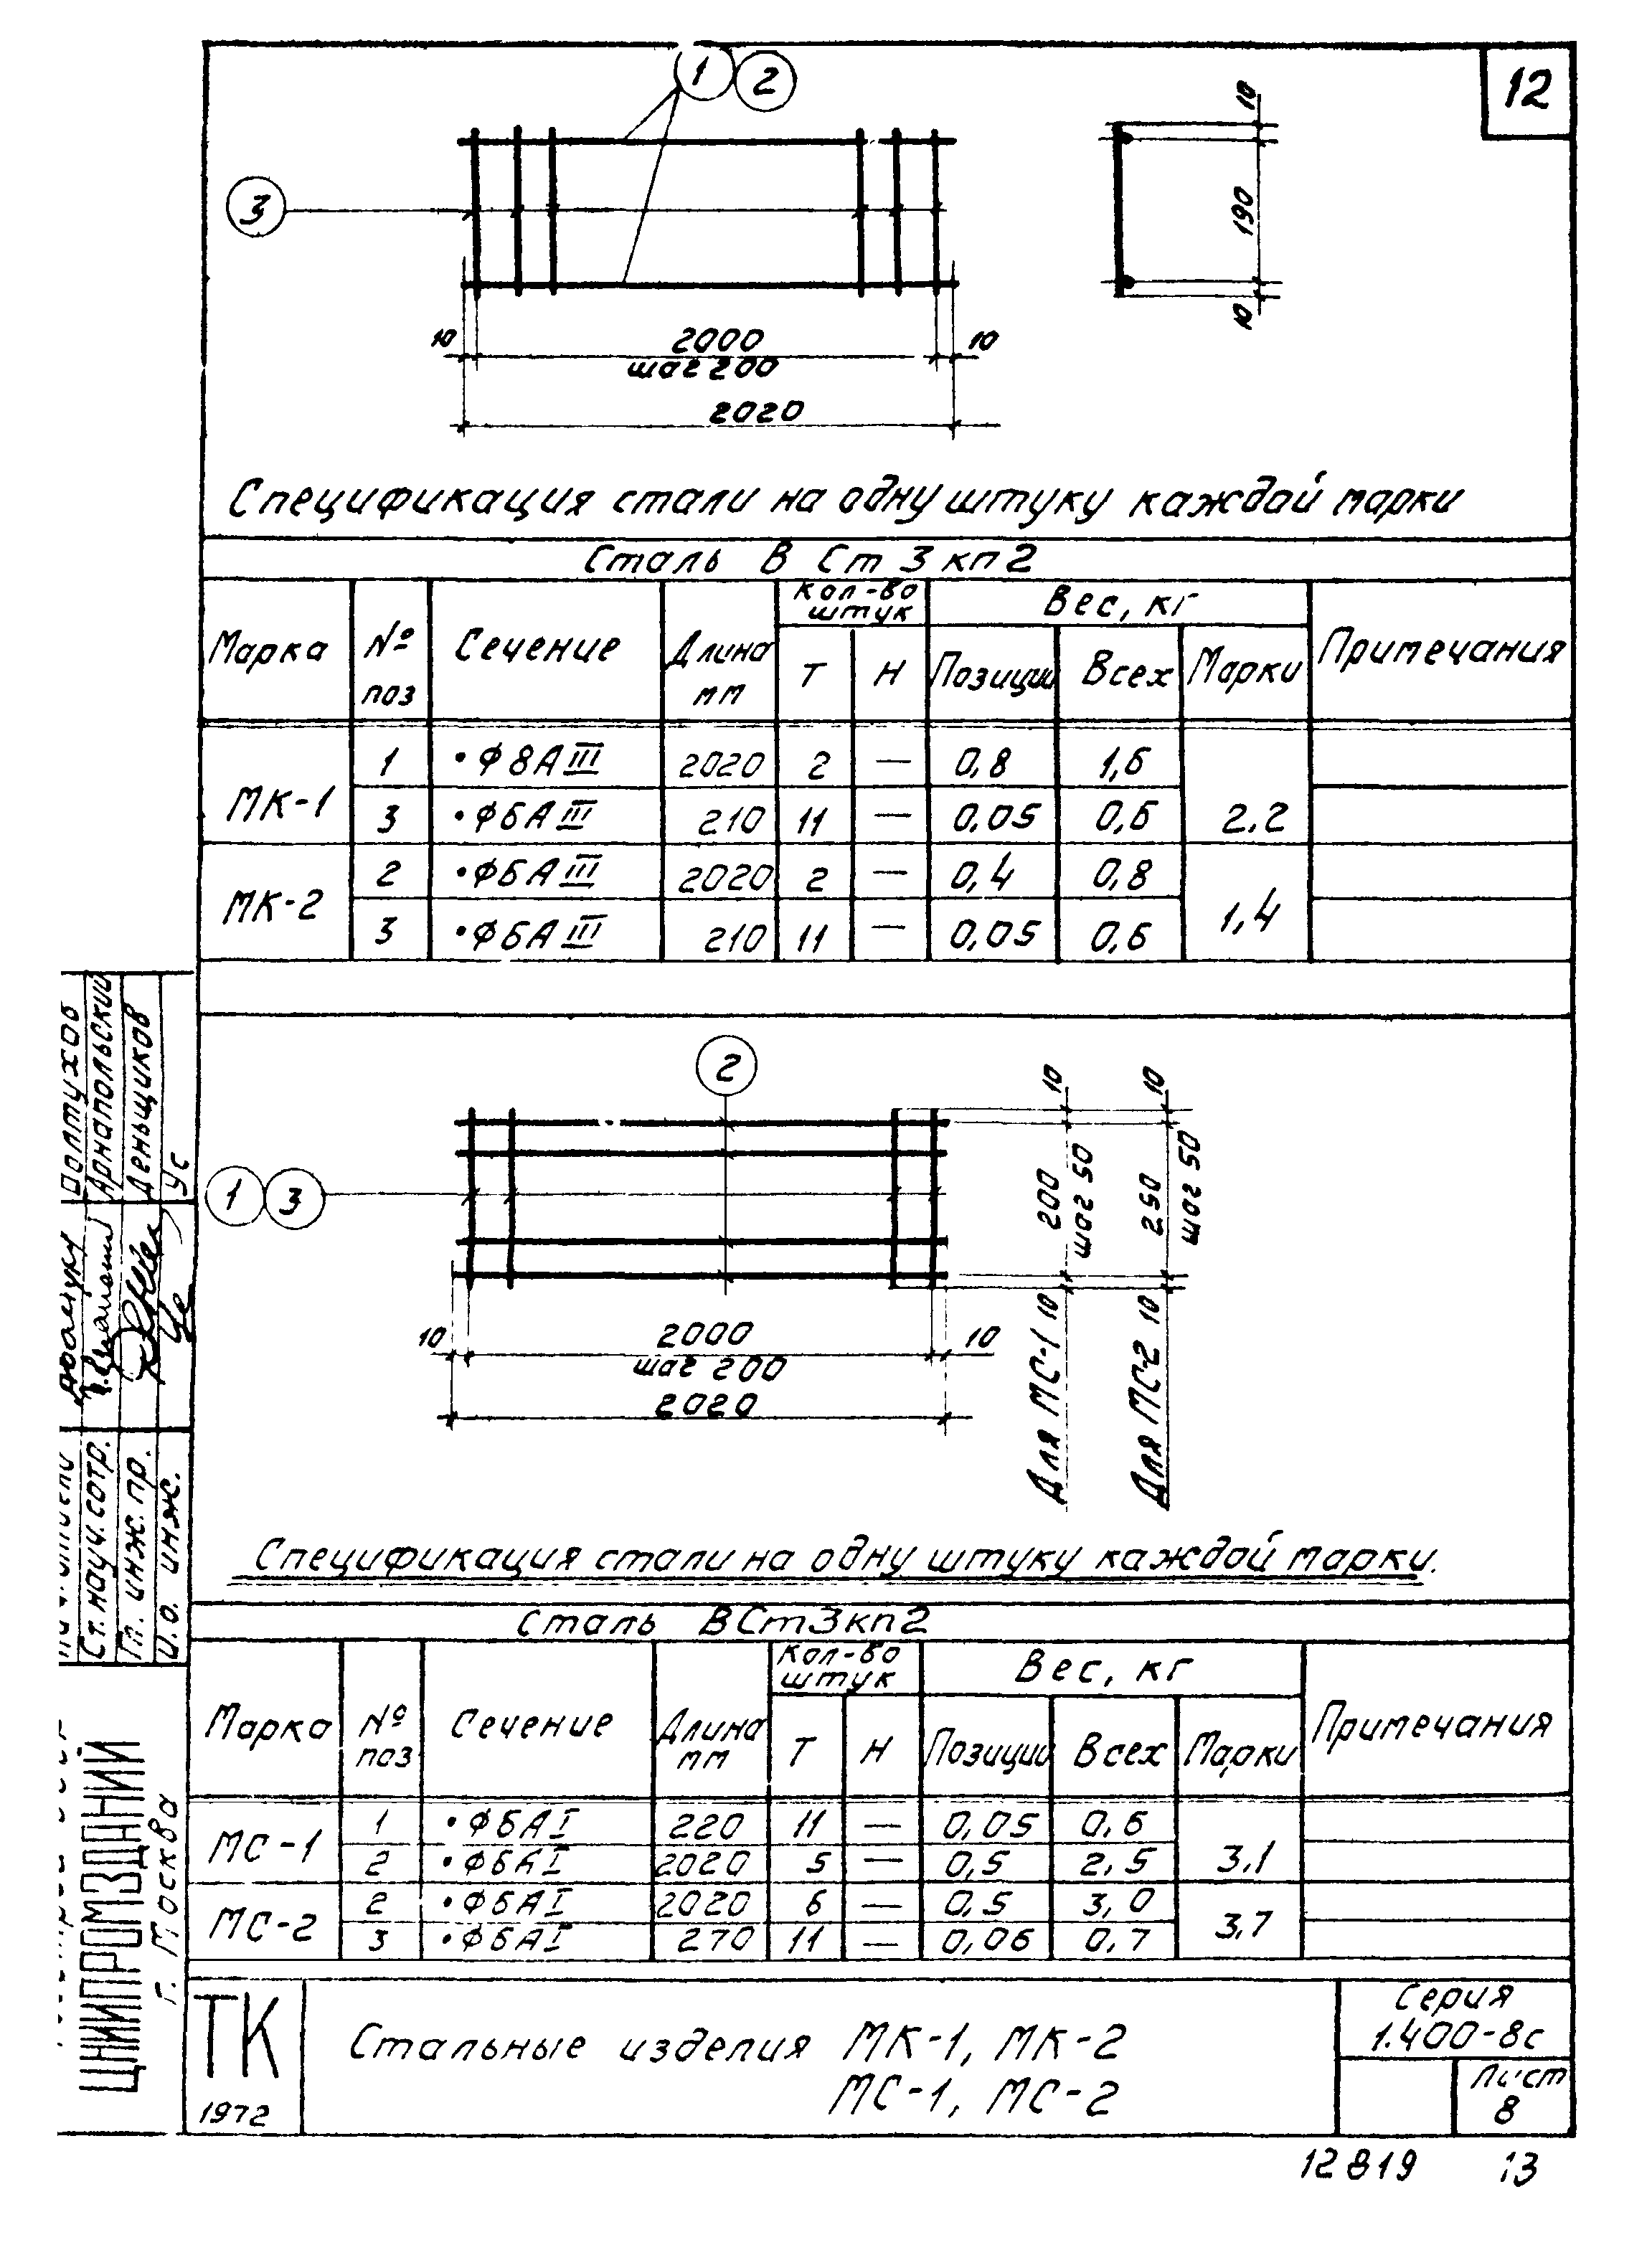 12
1 2
3
10
190
10
10 2000 10
шаг 200
2020
Спецификация стали на одну штуку каждой марки
Сталь В Ст 3 кп 2
Марка № поз Сечение Длина мм Кол-во штук Вес, кг Примечания
Т Н Позиции Всех Марки
МК-1 1 •Ф8АIII 2020 2 — 0,8 1,6 2,2
3 •Ф6АIII 210 11 — 0,05 0,6
МК-2 2 •Ф6АIII 2020 2 — 0,4 0,8 1,4
3 •Ф6АIII 210 11 — 0,05 0,6
2
1 3
10 10
200 шаг 50 250 шаг 50
Для МС-1 10 Для МС-2 10
10 2000 10
шаг 200
2020
Спецификация стали на одну штуку каждой марки.
Сталь ВСт3кп2
Марка № поз Сечение Длина мм Кол-во штук Вес, кг Примечания
Т Н Позиции Всех Марки
МС-1 1 •Ф6АI 220 11 — 0,05 0,6 3,1
2 •Ф6АI 2020 5 — 0,5 2,5
МС-2 2 •Ф6АI 2020 6 — 0,5 3,0 3,7
3 •Ф6АI 270 11 — 0,06 0,7
ТК
1972
Стальные изделия МК-1, МК-2
МС-1, МС-2
Серия
1.400-8с
Лист
8
12819 13
Долтухов
Ст. науч. сотр. Арнапольский
Гл. инж. пр. Деньщиков
И.о. инж. Ус
ЦНИИПРОМЗДАНИЙ
г. Москва